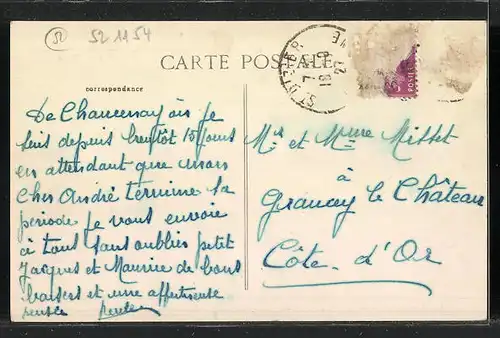 52 52 1154
CARTE POSTALE
correspondance
ST DIZIER
7
18
27
POSTES
De Chancenay où je
suis depuis bientôt 15 jours
en attendant que mon
Cher André termine sa
période je vous envoie
à tous sans oublier petit
Jacques et Maurice de bons
baisers et une affectueuse
pensée
Mr et Mme Millet
à
Grancey le Château
Côte-d'Or